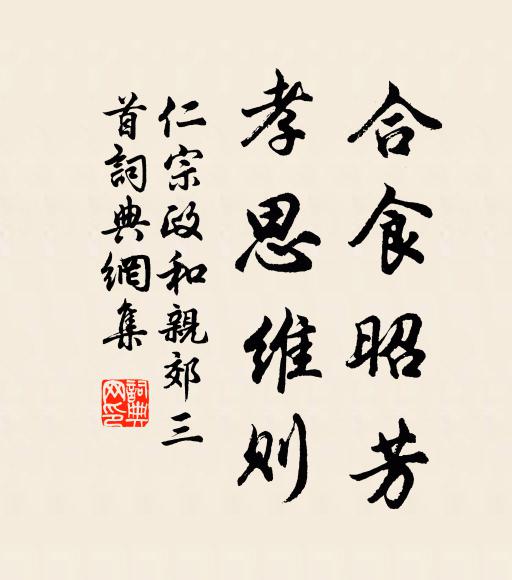 合食昭芳
孝思維则
仁宗政和親郊三
首詞典網集
詞典
网印